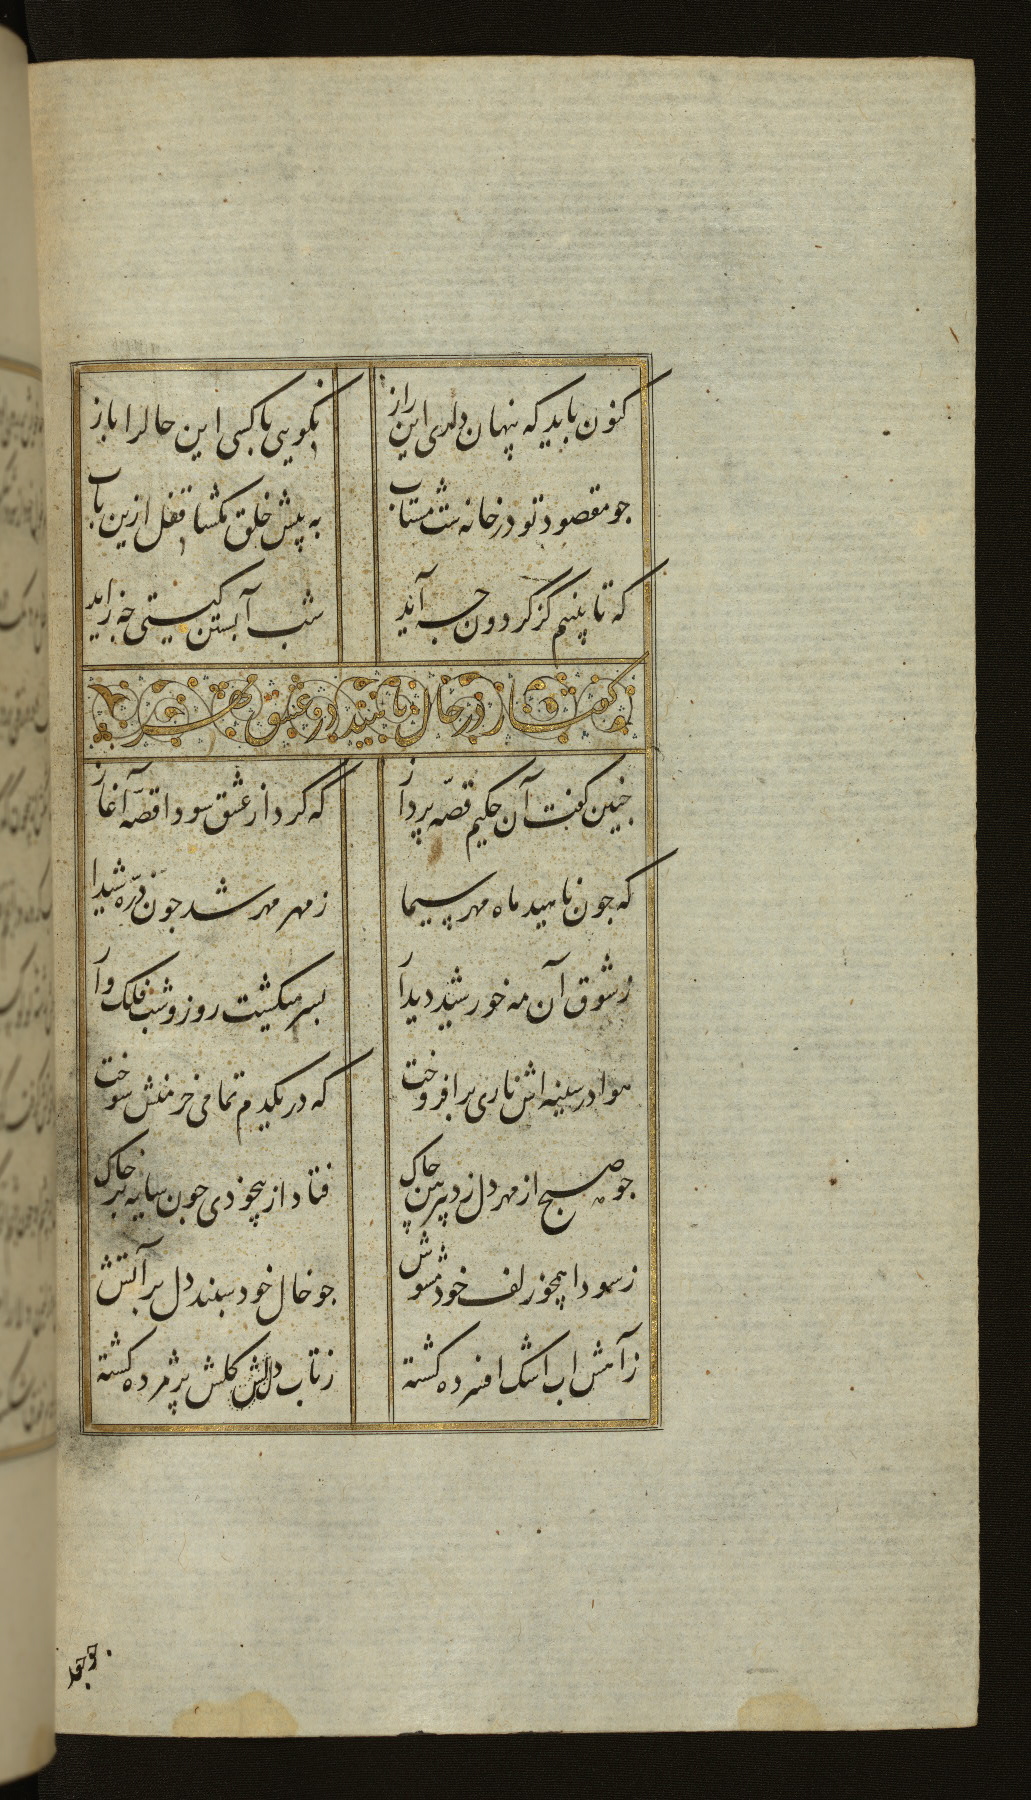 کنون باید که پنهان داری این راز نکویی با کسی این حالرا باز
جو مقصود تو در خانه ست مشتاب به پیش خلق مکشا قفل ازین باب
که تا بینیم کز کردون جه آید شب آبستن کیتی جه زاید
کفتار در حال ناهید در عشق مهر
جنین کفت آن حکیم قصّه پرداز که کرد از عشق سودا قصّه آغاز
که جون ناهید ماه مهر سیما ز مهر مهر شد جون ذرّه شیدا
ز شوق آن مه خورشید دیدار بسر میکشت روز و شب فلک وار
هوا در سینه اش ناری برافروخت که در یکدم تمامی خرمنش سوخت
جو صبح از مهر دل زد پیرهن چاک فتاد از بیخودی جون سایه بر خاک
ز سودا همچو زلف خود مشوش جو خال خود سپند دل بر آتش
ز آهش اب اشک افسرده کشته ز تاب دل کلش پژمرده کشته
جو جعد